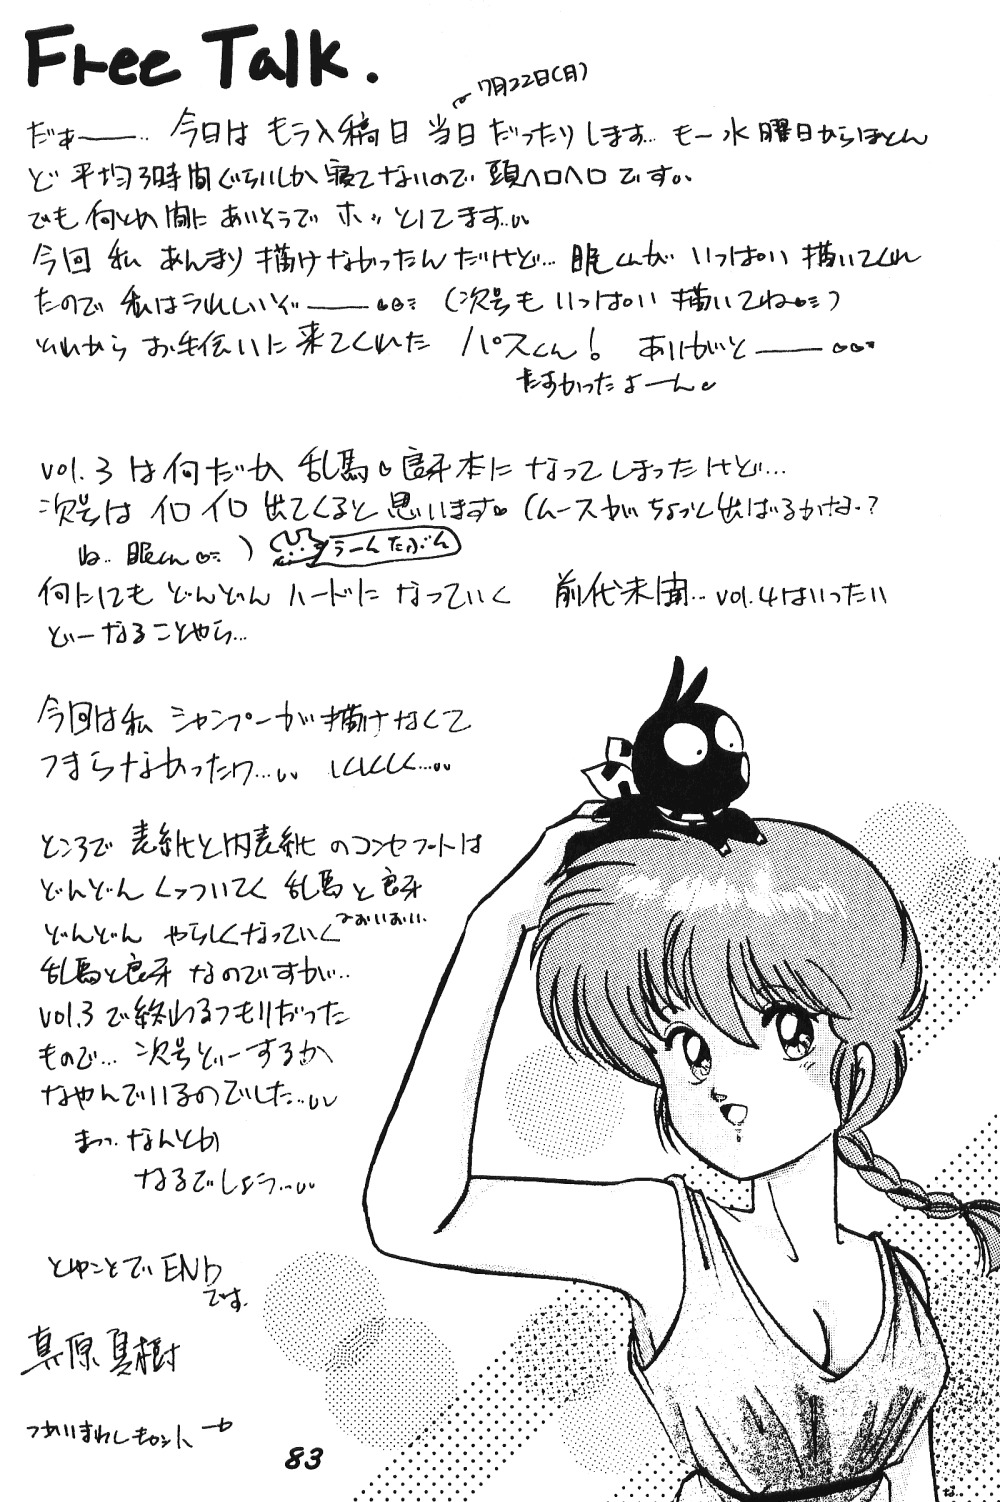 Free Talk.
7月22日(月)
だぁ――… 今日は もう入稿日 当日 だったりします… もー水曜日からほとん
ど 平均3時間ぐらいしか 寝てないので 頭ヘロヘロです。。
でも 何とか間に あいそうで ホッ としてます…。
今回 私 あんまり描けなかったんだけど… 眠くんが いっぱい 描いてくれ
たので 私はうれしいぞ―― (次号も いっぱい 描いてね)
それから お手伝いに 来てくれた パスくん! ありがと――
たすかったよーん
vol.3 は何だか 乱馬 良牙本に なってしまったけど…
次号は イロイロ 出てくると 思います (ムースがちょっと出ばるかな?
ね.. 眠くん )
うーん たぶん
何にしても どんどん ハードに なっていく 前代未聞… vol.4はいったい
どーなることやら…
今回は私 シャンプーが描けなくて
つまらなかったワ… しくしく…
ところで 表紙と内表紙 のコンセプトは
どんどん くっついてく 乱馬と良牙
どんどん やらしくなっていく
おいおい
乱馬と良牙 なのですが..
vol.3で終わるつもりだった
もので… 次号どーするか
なやんでいるのでした…
まっ.. なんとか
なるでしょう…
とゆことで END
です.
真原真樹
83